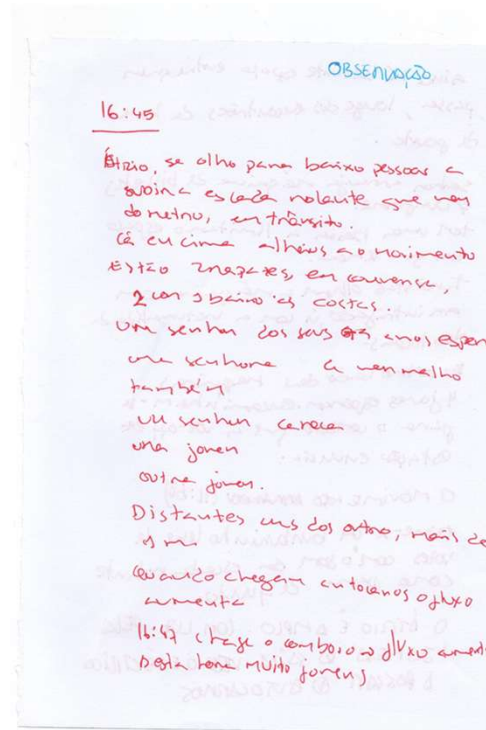 OBSERVAÇÃO
16:45
Átrio, se olho para baixo pessoas a
escada rolante que vem
do metro, em trânsito.
Cá em cima alheios ao movimento
Estão rapazes, em conversa,
2 com as costas.
Um senhor dos seus anos espera
uma senhora vermelho
também
um senhor careca
uma jovem
outra jovem.
Distantes uns dos outros, mais de
Quando chegam autocarros o fluxo
aumenta
16:47 chega o comboio o fluxo aumenta
Desta hora muito jovens